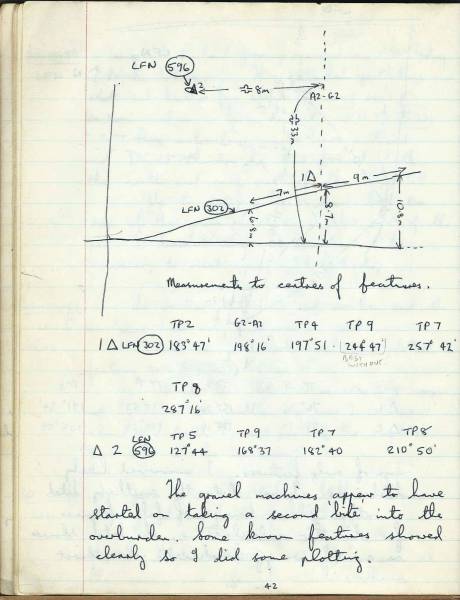 LFN 596
△2
≏8m
A2-G2
≏33m
1△
9m
7m
LFN 302
6.8m
8.7m
10.8m
Measurements to centres of features.
TP2 G2-A2 TP4 TP9 TP7
1 △ LFN 302 183°47' 198°16' 197°51 (246°47') 257°42'
BEST WITHOUT
TP8
287°16'
LFN TP5 TP9 TP7 TP8
△ 2 596 127°44 168°37 182°40 210°50'
The gravel machines appear to have
started on taking a second bite into the
overburden. Some known features showed
clearly so I did some plotting.
42